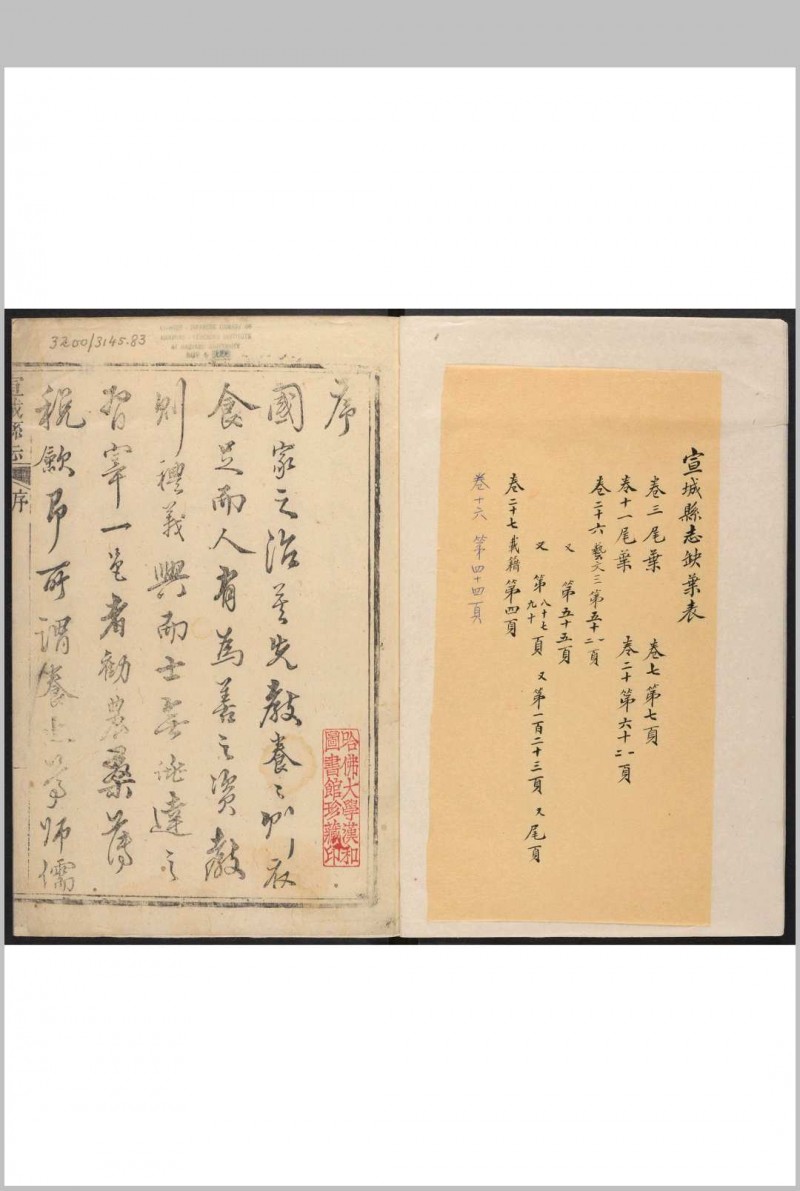 宣城縣志缺葉表
卷三尾葉 卷七第七頁
卷十一尾葉 卷二十第六十一二頁
卷二十六藝文三第五十一二頁
又 第五十五頁
又 第八十七九十頁 又第一百二十三頁 又尾頁
卷二十七載籍第四頁
卷十六 第四十四頁
哈佛大學漢和
圖書館珍藏印
3200/3145.83
序
國家之治莫先教養之則衣
食足而人有為善之資教
則禮義興而士無違之
宰一邑者勸農桑薄
稅斂即所謂養也等師儒
宣城縣志
序